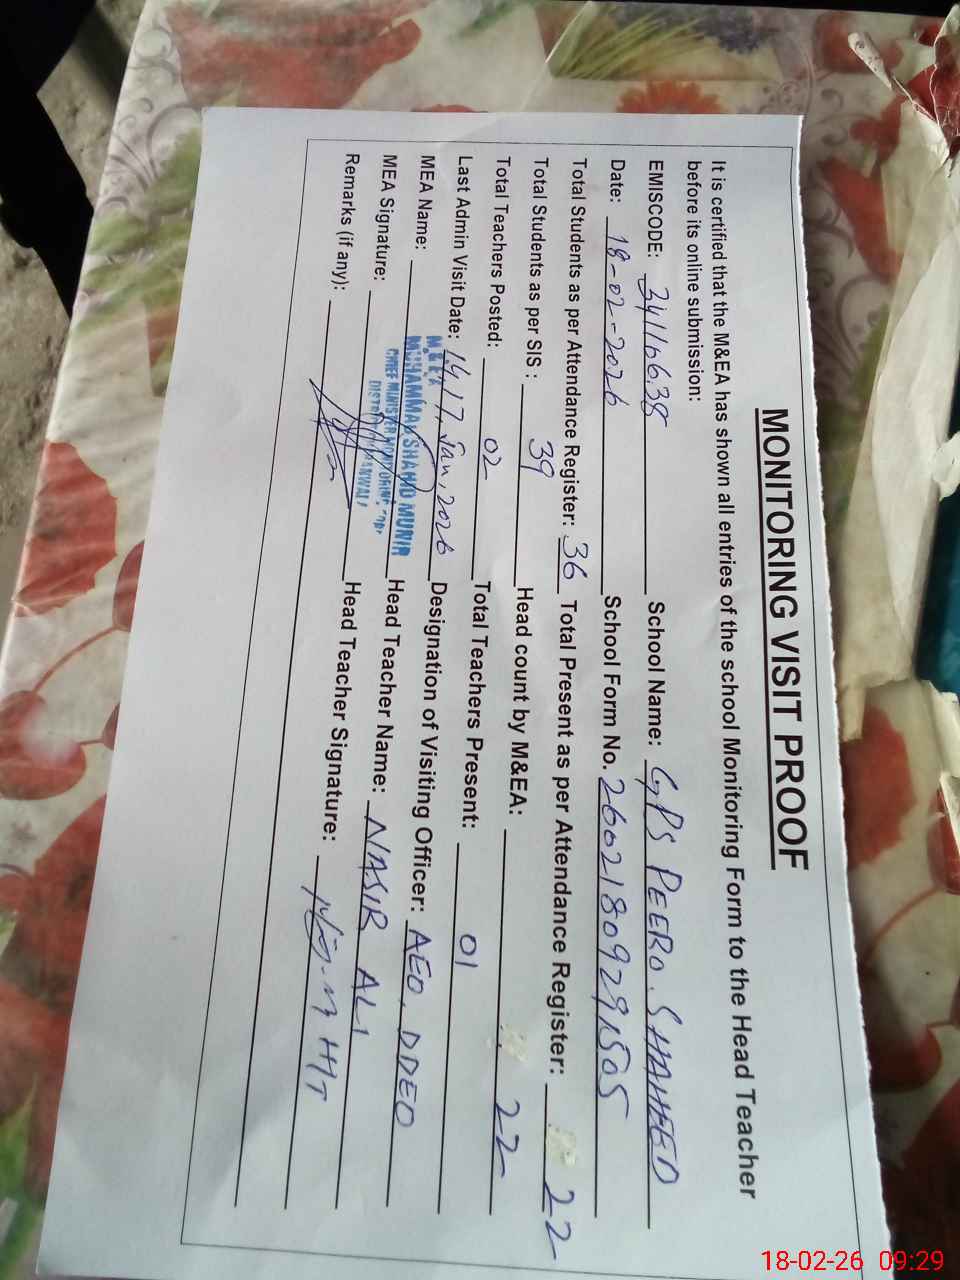 MONITORING VISIT PROOF
It is certified that the M&EA has shown all entries of the school Monitoring Form to the Head Teacher
before its online submission:
EMISCODE: 34116638 School Name: GPS PEERO. SHAHEED
Date: 18-02-2026 School Form No. 26021809291505
Total Students as per Attendance Register: 36 Total Present as per Attendance Register: 22
Total Students as per SIS: 39 Head count by M&EA: 22
Total Teachers Posted: 02 Total Teachers Present: 01
Last Admin Visit Date: 14,17, Jan, 2026 Designation of Visiting Officer: AEO, DDEO
MEA Name: M.&E.A MUHAMMAD SHAHID MUNIR Head Teacher Name: NASIR ALI
CHIEF MINISTER MONITORING
MEA Signature: Head Teacher Signature: H/T
Remarks (if any):
18-02-26 09:29